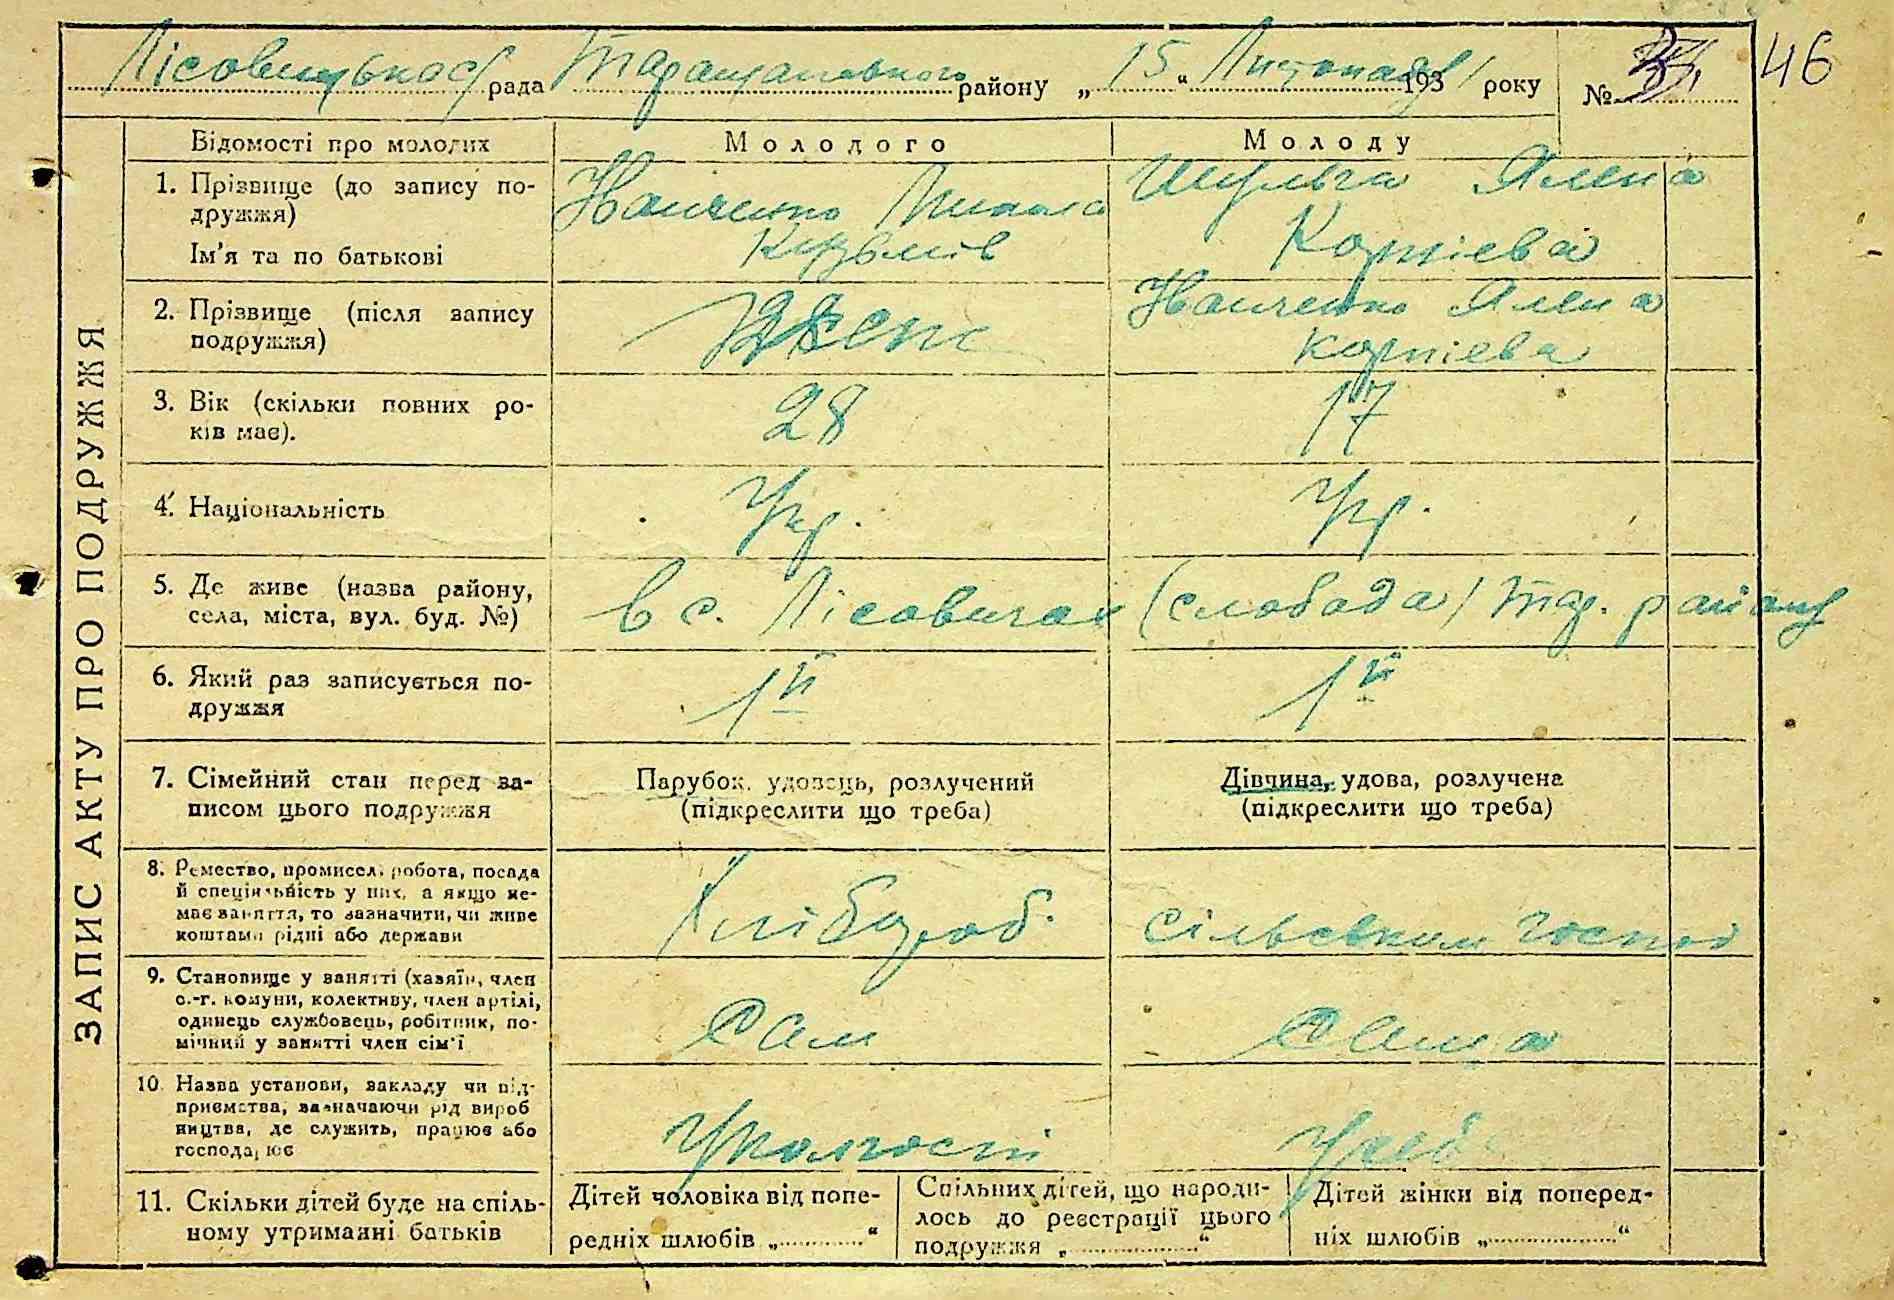 Лісовицької рада Таращанського району „15“ Листопаду 1931 року №
46
ЗАПИС АКТУ ПРО ПОДРУЖЖЯ
Відомості про молодих
Молодого
Молоду
1. Прізвище (до запису по-
дружжя)
Ім'я та по батькові
Микола
Кузьмів
Шульга Ялена
Корнієва
2. Прізвище (після запису
подружжя)
Ялена
Корнієва
3. Вік (скільки повних ро-
ків має).
28
17
4. Національність
Укр.
Укр.
5. Де живе (назва району,
села, міста, вул. буд. №)
в с. Лісовичах (слобода) Тар. району
6. Який раз записується по-
дружжя
1й
1й
7. Сімейний стан перед за-
писом цього подружжя
Парубок, удовець, розлучений
(підкреслити що треба)
Дівчина, удова, розлучена
(підкреслити що треба)
8. Ремество, промисел, робота, посада
й спеціяльність у них, а якщо не-
має заняття, то зазначити, чи живе
коштами рідні або держави
Хлібороб.
сільським госпо
9. Становище у занятті (хазяїн, член
с.-г. комуни, колективу, член артілі,
одинець службовець, робітник, по-
мічний у занятті член сім'ї
Сам
Сама
10. Назва установи, закладу чи під-
приємства, зазначаючи рід вироб
ництва, де служить, працює або
господарює
11. Скільки дітей буде на спіль-
ному утриманні батьків
Дітей чоловіка від попе-
редніх шлюбів „ “
Спільних дітей, що народи-
лось до реєстрації цього
подружжя „ “
Дітей жінки від поперед-
ніх шлюбів „ “